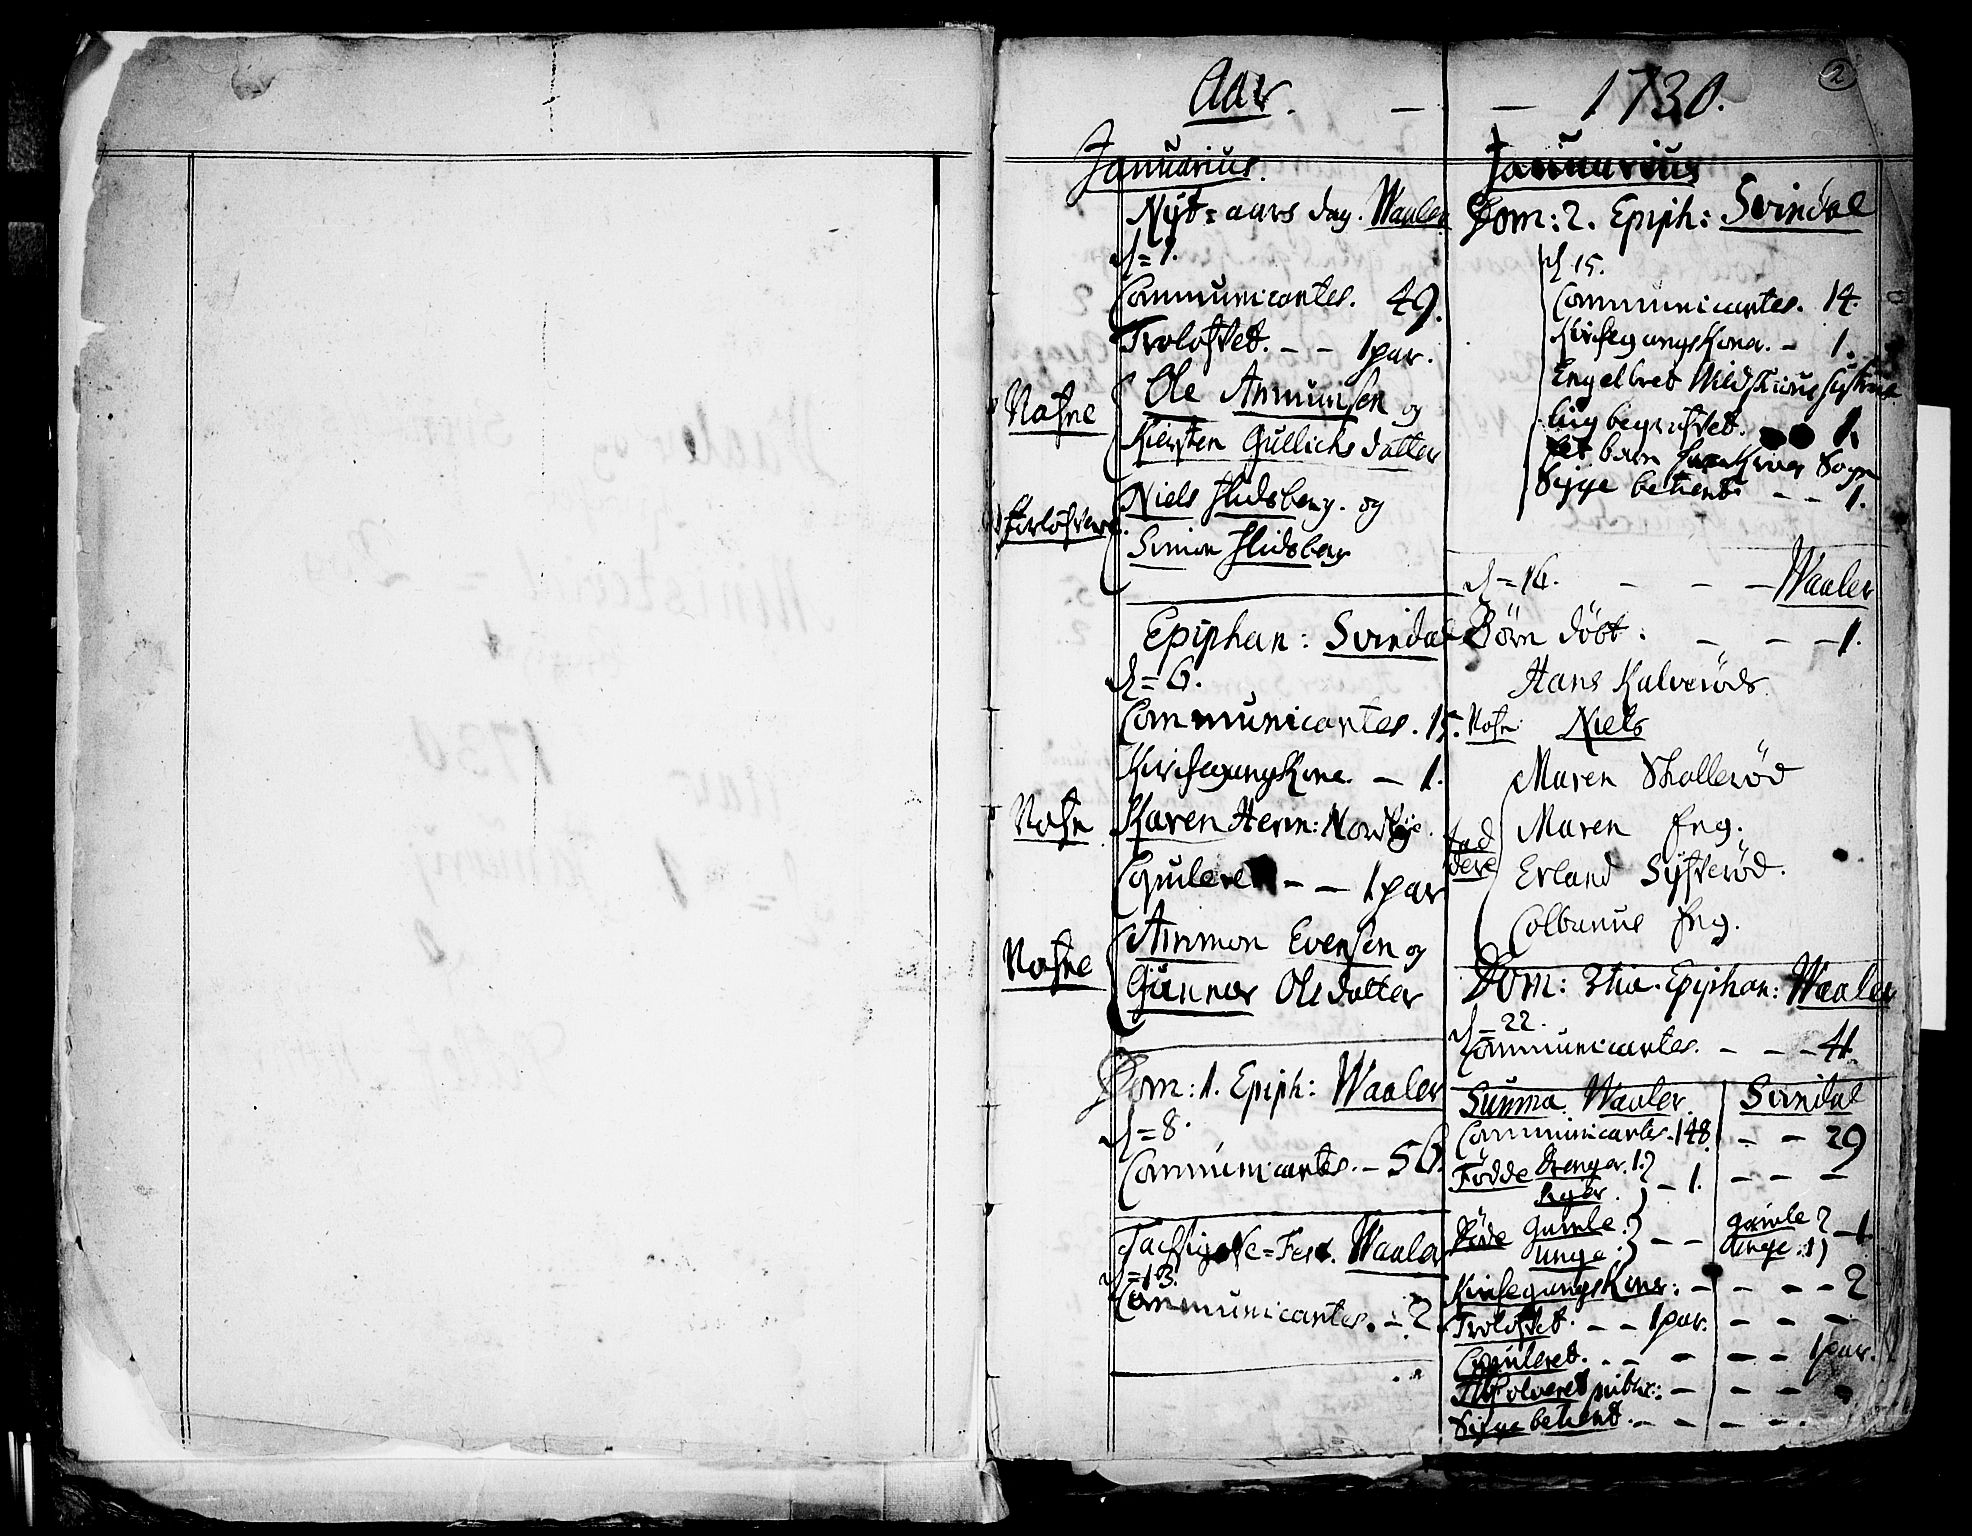 2
Aar. — — 1730.
Januarius.
Nyt=aars dag. Waaler
d = 1.
Communicantes. 49.
Trolofvet. — — 1 par.
Nafne
Ole Ammunsen og
Kiersten Gullichs datter
Forlofvere.
Niels Huidsberg. og
Simon Huidsberg
Epiphan: Svindal
d = 6.
Communicantes. 15.
Kirchegangs Kone. — 1.
Nafn
Karen Herm: Nordbye.
Copuleret — — 1 par
Nafne
Ammon Evensen og
Gunnor Olsdatter
Dom: 1. Epiph: Waaler
d = 8.
Communicantes. — 56.
Tachsigelse=Fest. Waaler
d = 13.
Communicantes. — 2.
Januarius
Dom: 2. Epiph: Svindal
d 15.
Communicantes. 14.
Kirchegangs Kone. — 1.
Engelbret
Liig begrafvet. 1.
et barn Sogn
Syge betient — — 1.
d = 16. — — — Waaler
Börn döbt. — — — 1.
Hans Kalveröds
Nafn: Niels
Faddere
Maren Skolleröd
Maren Eng.
Erland Syfteröd.
Colbanus Eng.
Dom: 3tia. Epiphan: Waaler
d = 22.
Communicantes. — — — 41.
Summa Waaler. Svindal
Communicantes. 148 — — 29
Födde Drenger. 1. — 1. — — —
Piger.
Döde Gamle. — — Gamle — 1
Unge: Unge: 1
Kirchegangs Koner: — — — — 2
Trolofvet. — — 1 par. — — —
Copuleret. — — — — — 1 par.
Absolveret public: — — —
Syge betient. — — — — —